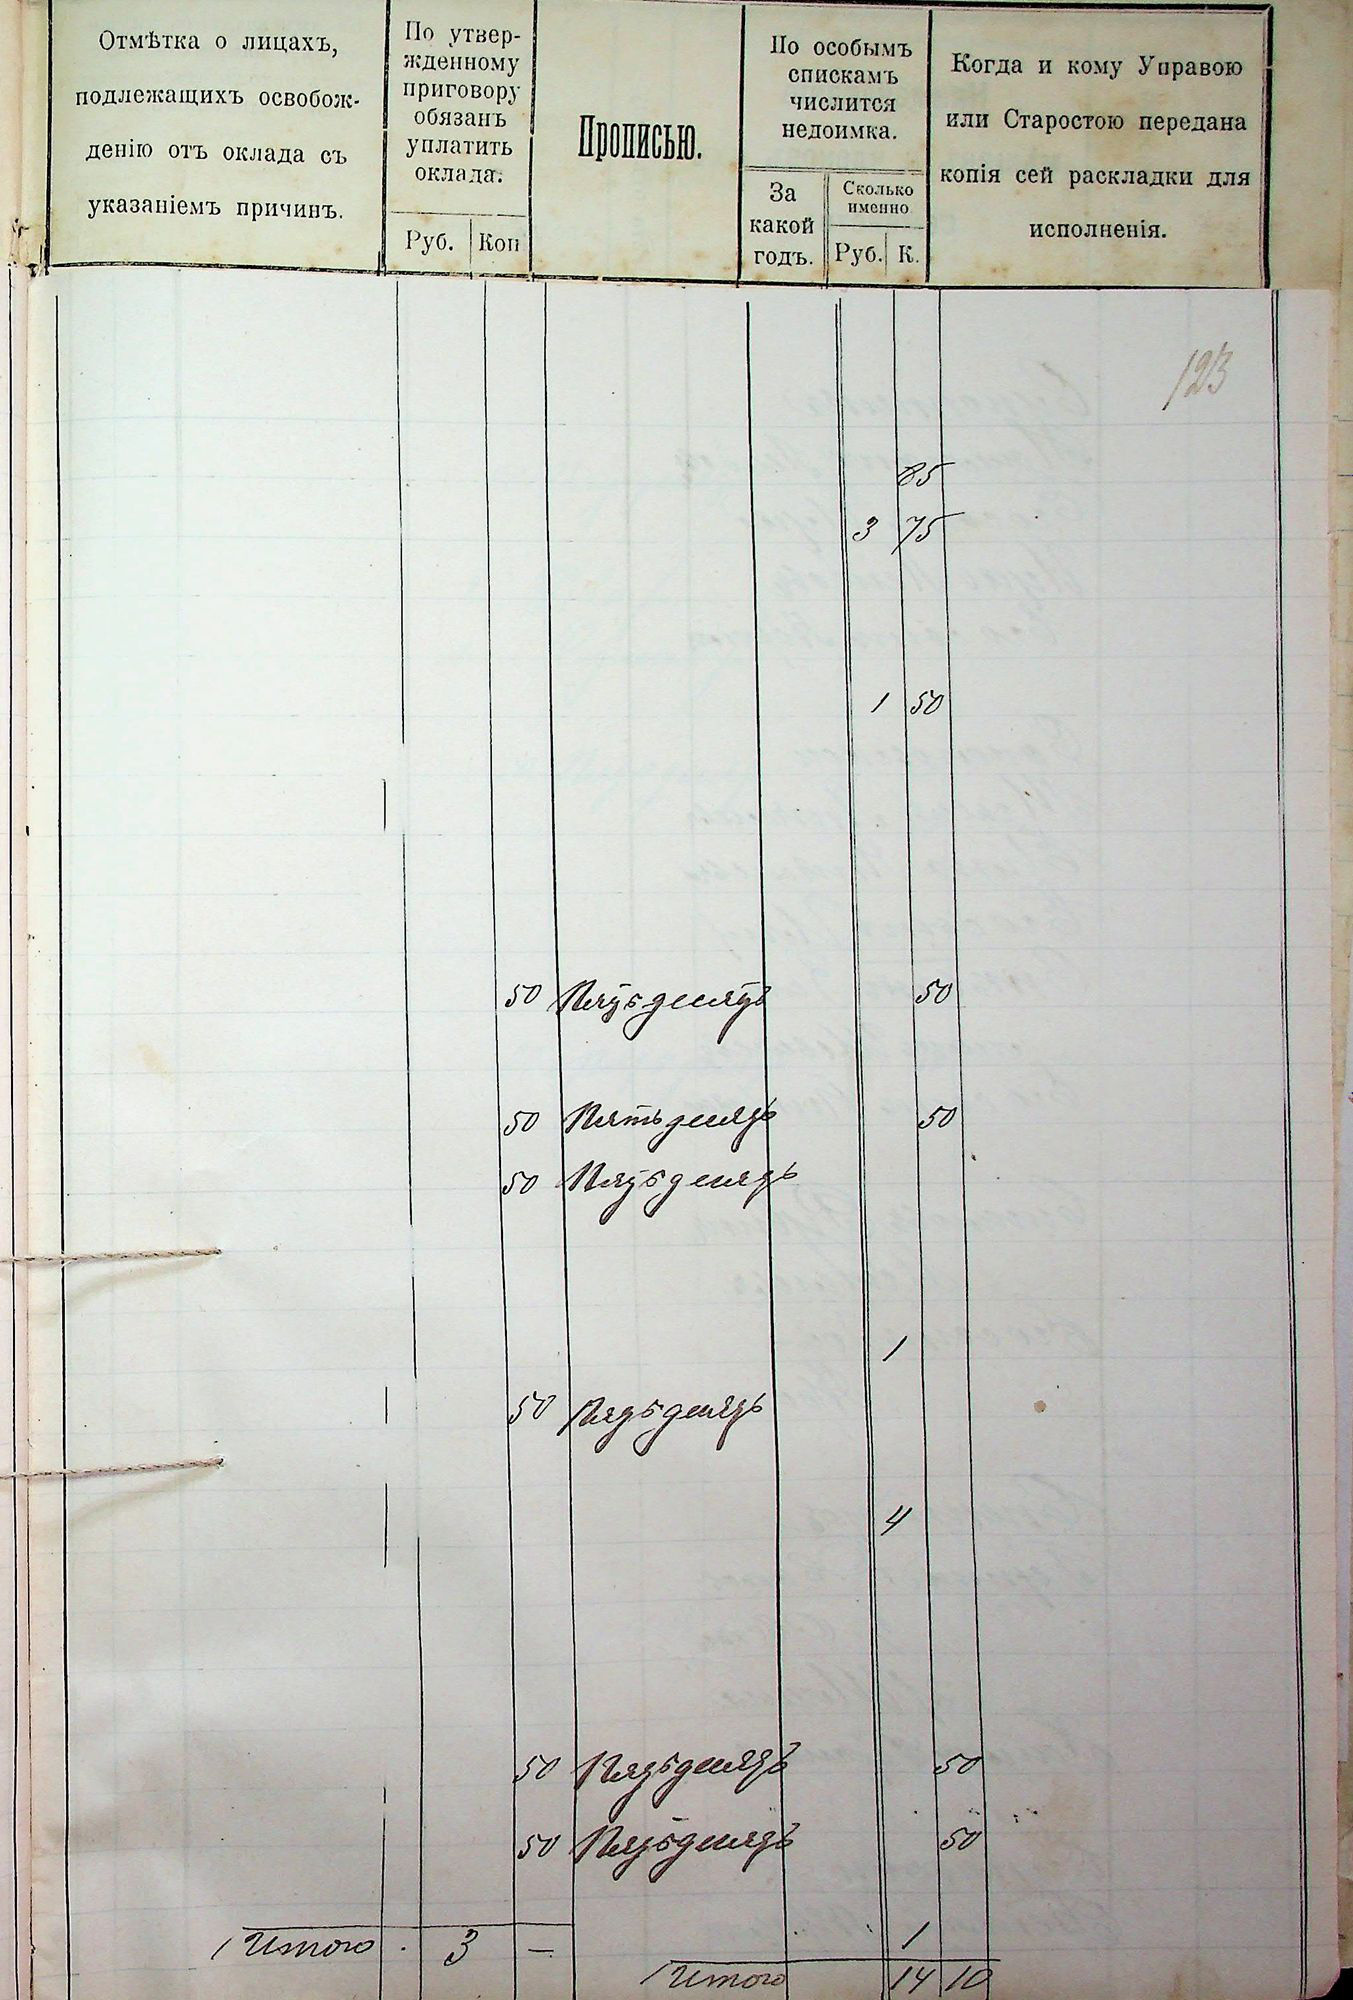 Отмѣтка о лицахъ,
подлежащихъ освобож-
денію отъ оклада съ
указаніемъ причинъ.
По утвер-
жденному
приговору
обязанъ
уплатить
оклада:
Руб. Коп
Прописью.
По особымъ
спискамъ
числится
недоимка.
За
какой
годъ.
Сколько
именно
Руб. К.
Когда и кому Управою
или Старостою передана
копія сей раскладки для
исполненія.
123
85
3 75
1 50
50 Пятьдесятъ 50
50 Пятьдесятъ 50
50 Пятьдесятъ
1
50 Пятьдесятъ
4
50 Пятьдесятъ 50
50 Пятьдесятъ 50
1
Итого . 3 —
Итого 14 10